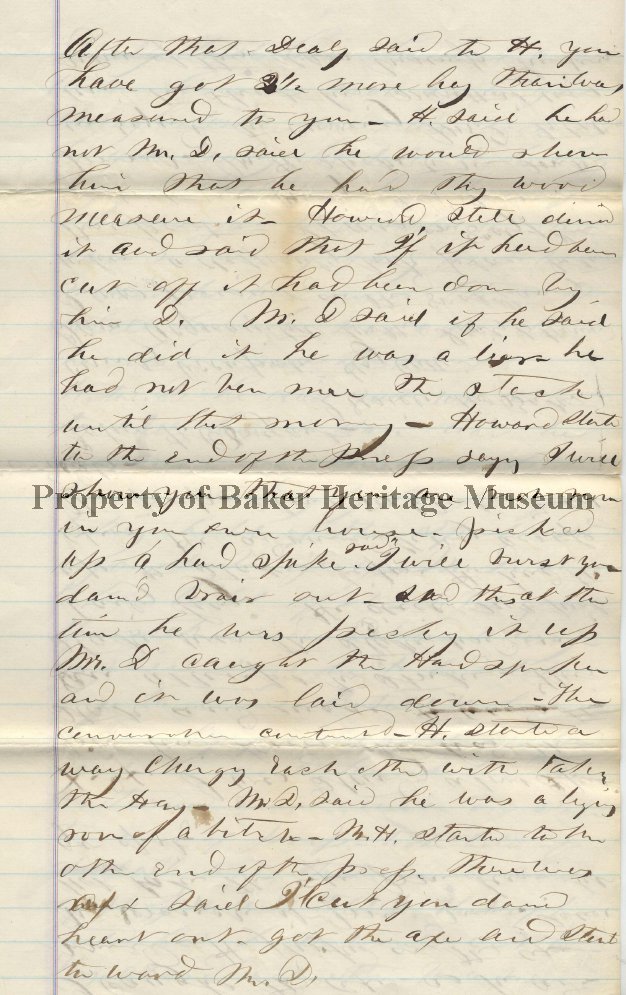 After that Dealy said to H. you
have got more hay than was
measured to you - H. said he had
not Mr. D. said he would show
him that he had they wood
measure it - Howard still denied
it and said that if it had been
cut off it had been done by
him D. Mr. D said if he said
he did it he was a liar he
had not ben near the stack
until that morning - Howard starte
to the end of the press sayg I will
show you that you are not now
in you own house - picked
up a hand spike said I will burst you
damd brain out - said this at the
tim he was picking it up
Mr. D caught the Hand spike
and it was laid down - The
conversation continued - H. started a
way chargy each other with taken
the Hay - Mr. D. said he was a lying
son of a bitch - Mr. H. starte to the
other end of the press. There was
axe & said I'll cut you damd
heart out - got the axe and start
to ward Mr. D.
Property of Baker Heritage Museum